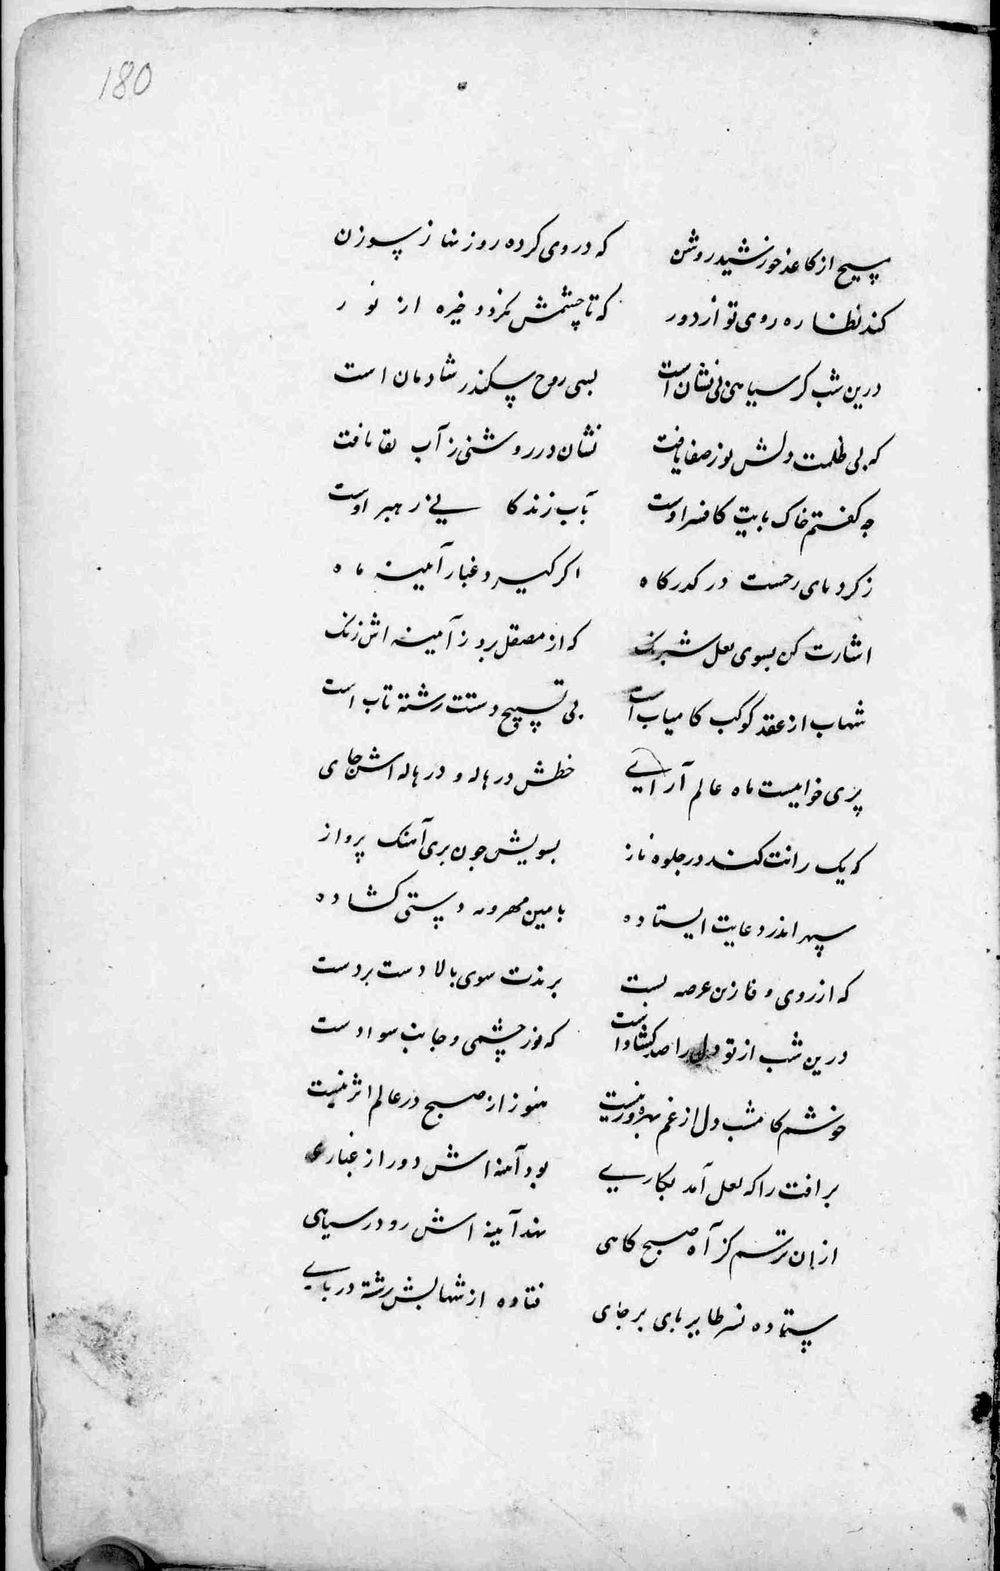 180
مسیح از کاغذ خورشید روشن که در وی کرده روزنها ز سوزن
کند نظاره روی تو از دور که تا چشمش نگردد خیره از نور
درین شب کز سیاهی نی نشان است بسی روح سکندر شادمان است
که بی ظلمت دلش نور صفا یافت نشان در روشنی ز آب بقا یافت
چه گفتم خاک پایت کافسر اوست بآب زندگانی رهبر اوست
ز گرد پای رخشت در گذرگاه اگر گیرد غبار آیینه ماه
اشارت کن بسوی نعل شبرنگ که از مصقل برد ز آیینه اش زنگ
شهاب از عقد کوکب کامیاب است پی تسبیح دستت رشته تاب است
پری خوانیست ماه عالم آرایی خطش در هاله و در هاله اش جای
که یک رانت کند در جلوه ناز بسویش چون پری آهنگ پرواز
سپهر اندر دعایت ایستاده بآمین مهر و مه دستی کشاده
که از روی وفا زین عرصه پست برندت سوی بالا دست بر دست
درین شب از تو دل را صد کشاد است که نور چشمی و جانب سواد است
خوشم کامشب دل از غم بهره ور نیست هنوز از صبح در عالم اثر نیست
براقت را که نعل آمد نگاری بود آیینه اش دور از غباری
از ان ترسم کز آه صبحگاهی نهد آیینه اش رو در سیاهی
ستاده نسر طایر پای بر جای فتاده از شهابش رشته در پای